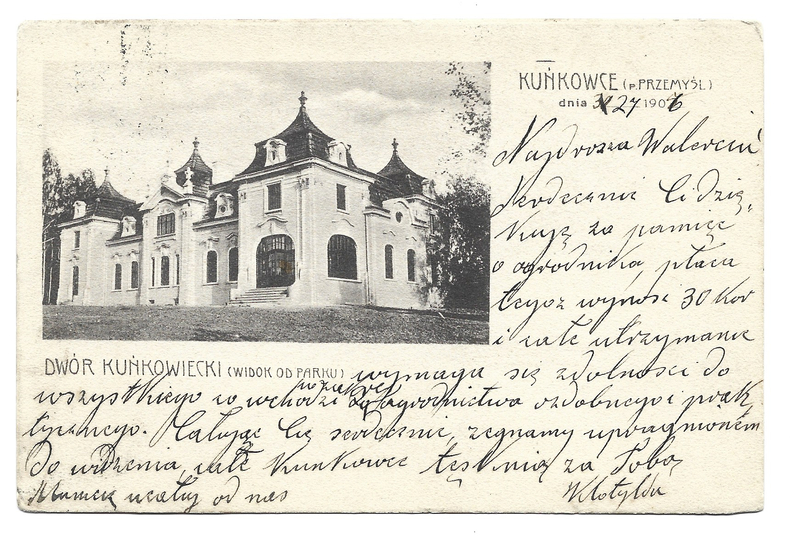 KUŃKOWCE (p. PRZEMYŚL)
dnia 27 1906
Najdrozsza Walerciu
Serdecznie Ci dzię-
kuję za pamięć
o ogrodnika, płaca
tegoz wynosi 30 Kor
i całe utrzymanie
DWÓR KUŃKOWIECKI (WIDOK OD PARKU) wymaga się zdolności do
wszystkiego co wchodzi w zakres ogrodnictwa ozdobnego i prak
tycznego. Całując Cię serdecznie, zegnamy upragnionem
do widzenia, całe Kunkowce tęsknią za Tobą
Mamcię ucałuj od nas Klotylda